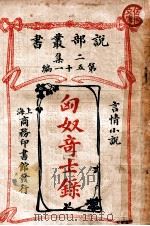 說部叢書
二集
第五十一編
言情小說
匈奴奇士錄
上海
商務印書館發行